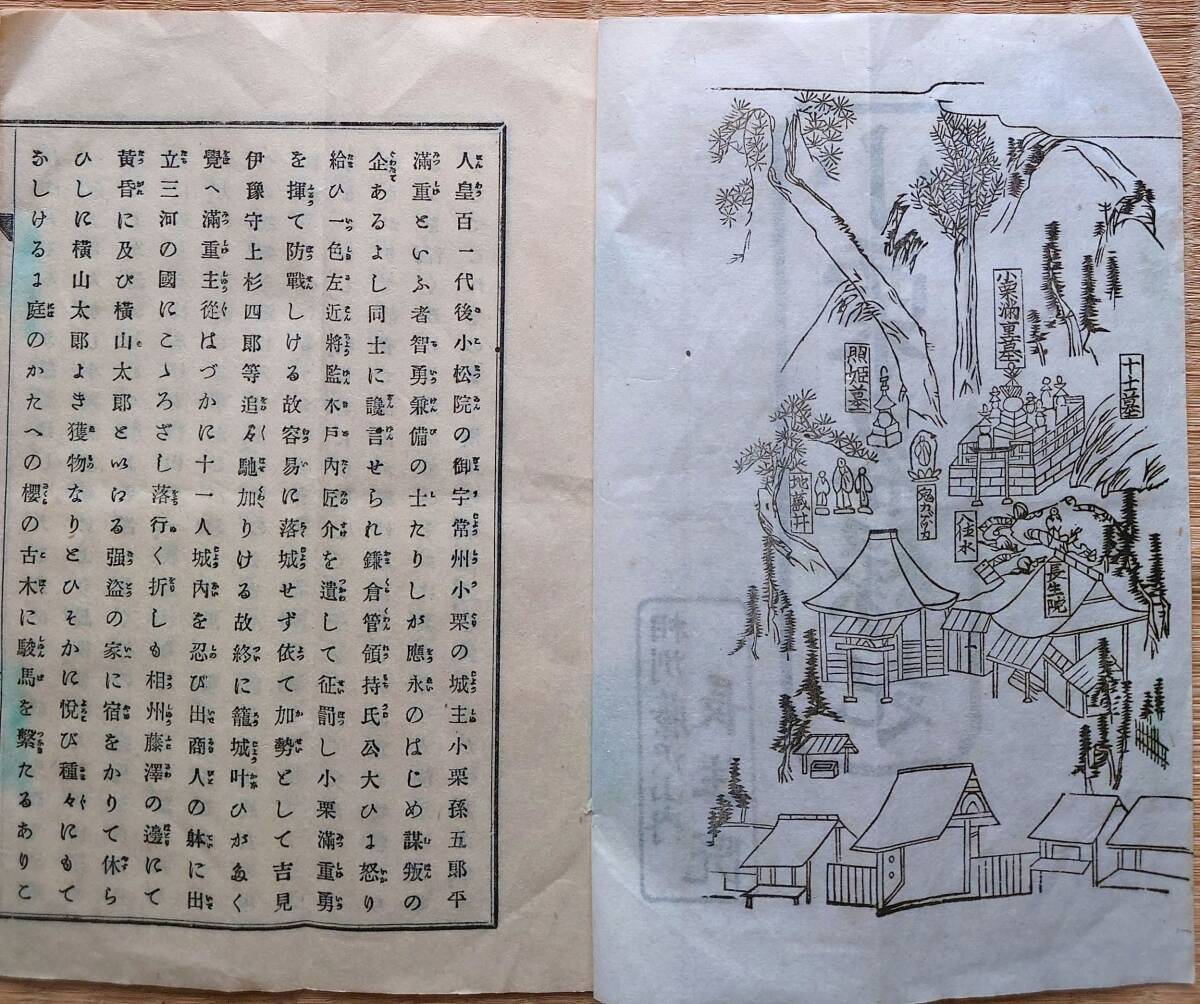 小栗満重墓
十士墓
照姫墓
地蔵井
鬼カゲカ松
八徳水
長生院
人皇百一代後小松院の御宇常州小栗の城主小栗孫五郎平
滿重といふ者智勇兼備の士たりしが應永のはじめ謀叛の
企あるよし同士に讒言せられ鎌倉管領持氏公大ひに怒り
給ひ一色左近將監木戸內匠介を遣して征罰し小栗滿重勇
を揮て防戰しける故容易に落城せず依て加勢として吉見
伊豫守上杉四郎等追々馳加りける故終に籠城叶ひがゐく
覺へ滿重主從はづかに十一人城內を忍び出商人の躰に出
立三河の國にこゝろざし落行く折しも相州藤澤の邊にて
黃昏に及び橫山太郎といける强盜の家に宿をかりて休ら
ひしに橫山太郎よき獲物なりとひそかに悅び種々にもて
なしけるに庭のかたへの櫻の古木に駿馬を繫たるありこ